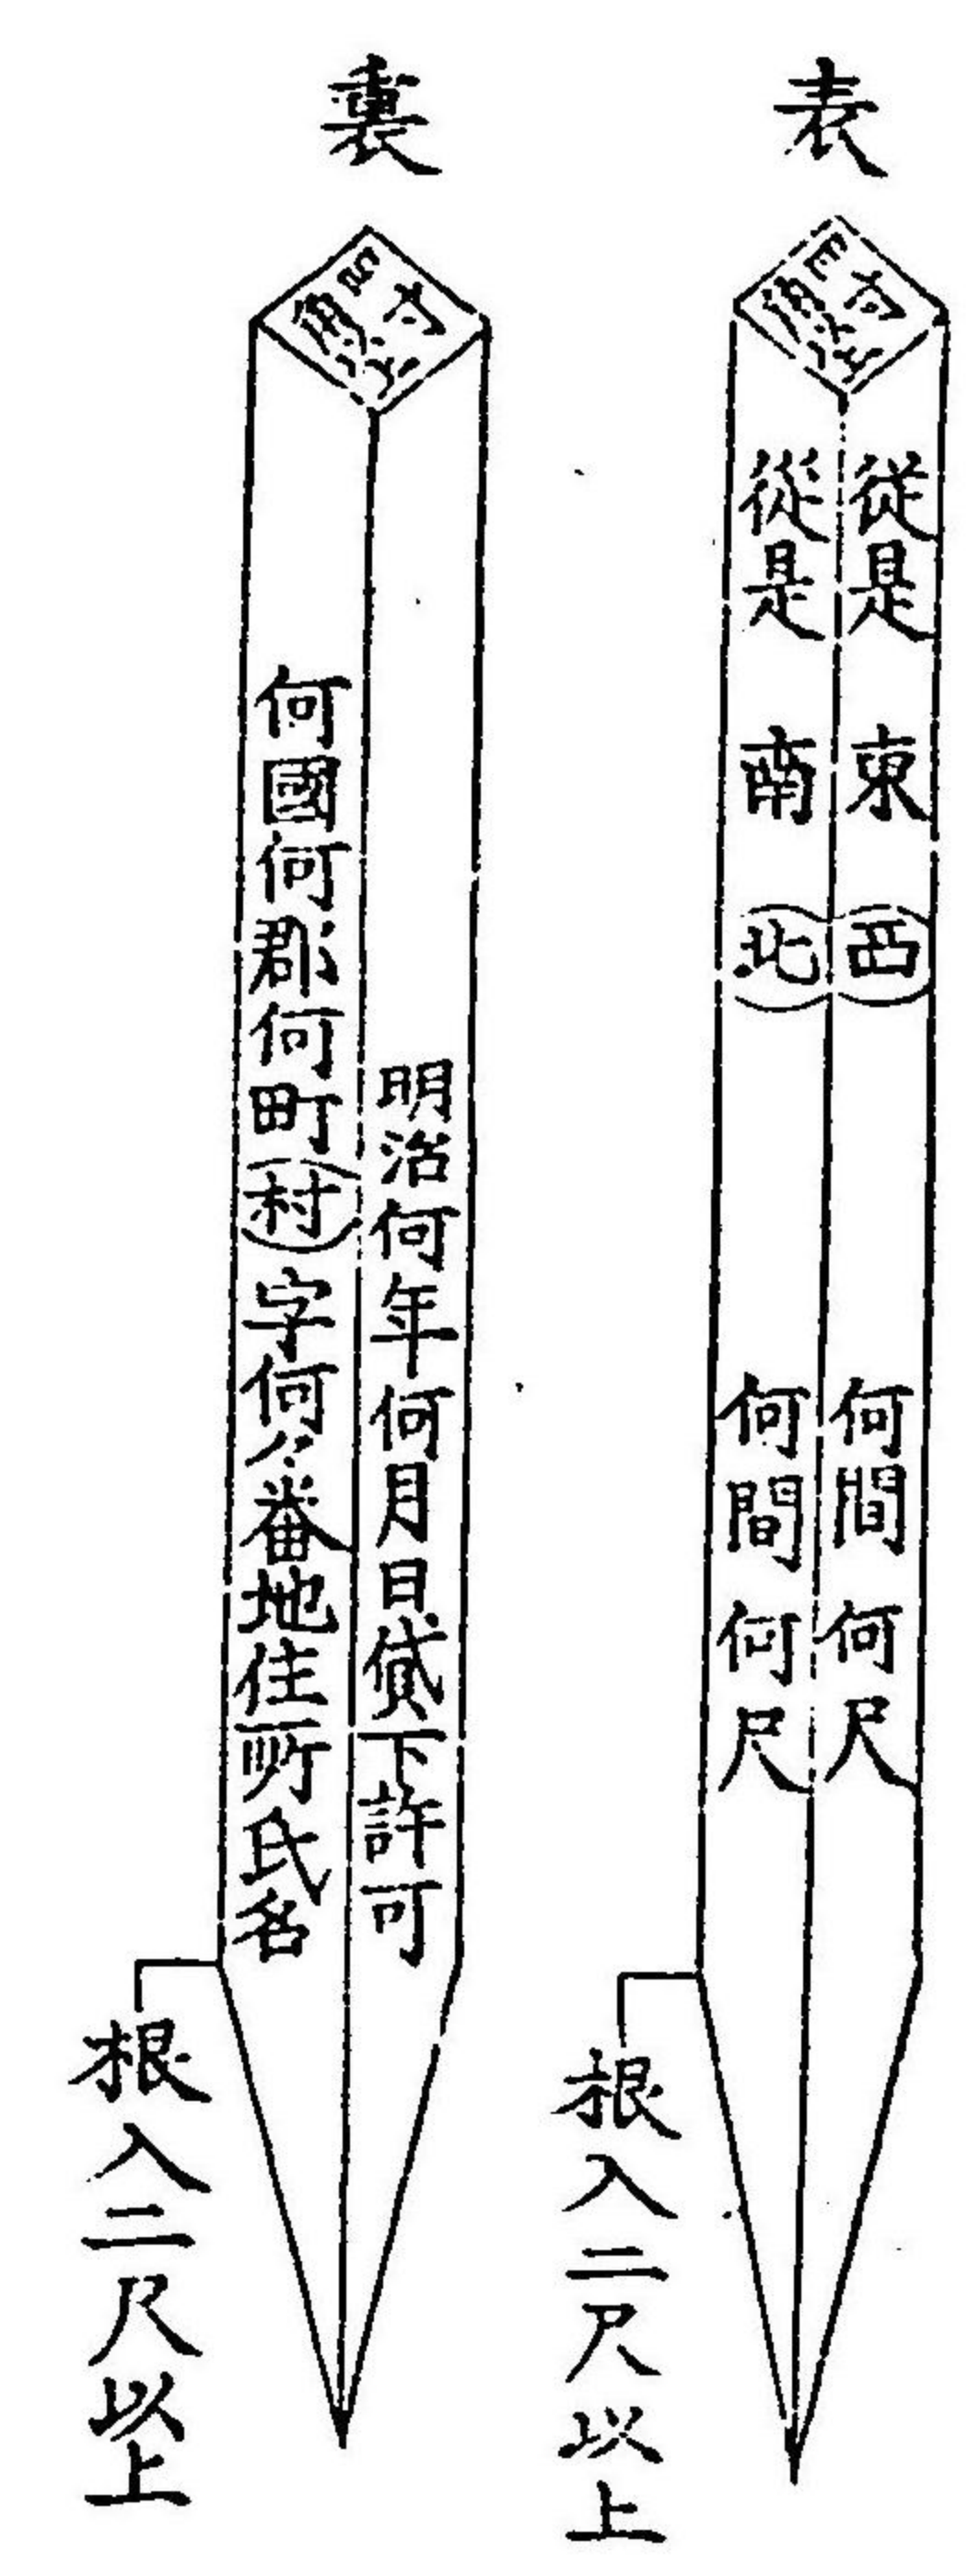 表
從是 東 (西) 何間何尺
從是 南 (北) 何間何尺
根入二尺以上
裏
明治何年何月日貸下許可
何國何郡何町(村)字何々番地住所氏名
根入二尺以上